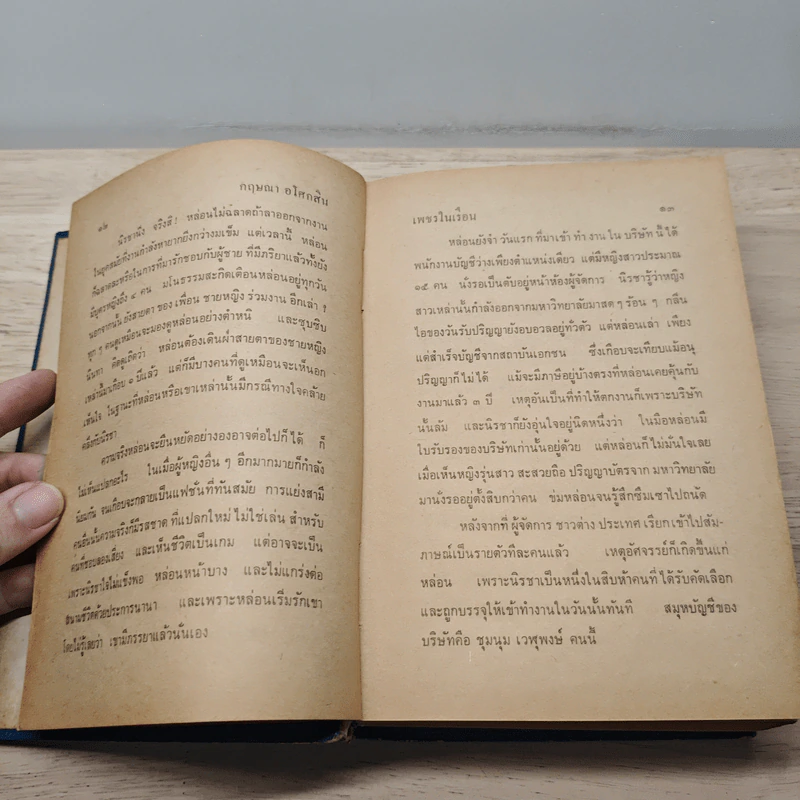 ๑๒
กฤษณา อโศกสิน
นิรชานึ่ง จริงสิ! หล่อนไม่ฉลาดถ้าลาออกจากงาน
ในยุคสมัยที่งานกำลังหายากยิ่งกว่างมเข็ม แต่เวลานี้ หล่อน
ก็ฉลาดละหรือในการที่มารักชอบกับผู้ชาย ที่มีภริยาแล้วทั้งยัง
มีบุตรหญิงถึง ๔ คน มโนธรรมสะกิดเตือนหล่อนอยู่ทุกวัน
นอกจากนั้น ยังสายตา ของ เพื่อน ชายหญิง ร่วมงาน อีกเล่า !
ทุก ๆ คนดูเหมือนจะมองดูหล่อนอย่างตำหนิ และซุบซิบ
นินทา คิดดูเถิดว่า หล่อนต้องเดินฝ่าสายตาของชายหญิง
เหล่านี้มาเกือบ ๑ ปีแล้ว แต่ก็มีบางคนที่ดูเหมือนจะเห็นอก
เห็นใจ ในฐานะที่หล่อนหรือเขาเหล่านั้นมีกรณีทางใจคล้าย
คลึงกับนิรชา
ความจริงหล่อนจะยืนหยัดอย่างองอาจต่อไปก็ได้ ก็
ไม่เห็นแปลกอะไร ในเมื่อผู้หญิงอื่น ๆ อีกมากมายก็กำลัง
นิยมกัน จนเกือบจะกลายเป็นแฟชั่นที่ทันสมัย การแย่งสามี
คนอื่นนั้นความจริงก็มีรสชาด ที่แปลกใหม่ ไม่ใช่เล่น สำหรับ
คนที่ชอบลองเสี่ยง และเห็นชีวิตเป็นเกม แต่อาจจะเป็น
เพราะนิรชาใจไม่แข็งพอ หล่อนหน้าบาง และไม่แกร่งต่อ
ขนามชีวิตด้วยประการนานา และเพราะหล่อนเริ่มรักเขา
โดยไม่รู้เลยว่า เขามีภรรยาแล้วนั่นเอง
เพชรในเรือน
๑๓
หล่อนยังจำ วันแรก ที่มาเข้า ทำ งาน ใน บริษัท นี้ ได้
พนักงานบัญชีว่างเพียงตำแหน่งเดียว แต่มีหญิงสาวประมาณ
๑๕ คน นั่งรอเป็นตับอยู่หน้าห้องผู้จัดการ นิรชารู้ว่าหญิง
สาวเหล่านั้นกำลังออกจากมหาวิทยาลัยมาสด ๆ ร้อน ๆ กลิ่น
ไอของวันรับปริญญายังอบอวลอยู่ทั่วตัว แต่หล่อนเล่า เพียง
แต่สำเร็จบัญชีจากสถาบันเอกชน ซึ่งเกือบจะเทียบแม้อนุ
ปริญญาก็ไม่ได้ แม้จะมีภาษีอยู่บ้างตรงที่หล่อนเคยคุ้นกับ
งานมาแล้ว ๓ ปี เหตุอันเป็นที่ทำให้ตกงานก็เพราะบริษัท
นั้นล้ม และนิรชาก็ยังอุ่นใจอยู่นิดหนึ่งว่า ในมือหล่อนมี
ใบรับรองของบริษัทเก่านั้นอยู่ด้วย แต่หล่อนก็ไม่มั่นใจเลย
เมื่อเห็นหญิงรุ่นสาว สะสวยถือ ปริญญาบัตรจาก มหาวิทยาลัย
มานั่งรออยู่ตั้งสิบกว่าคน ข่มหล่อนจนรู้สึกซึมเซาไปถนัด
หลังจากที่ ผู้จัดการ ชาวต่าง ประเทศ เรียก เข้าไปสัม-
ภาษณ์เป็นรายตัวทีละคนแล้ว เหตุอัศจรรย์ก็เกิดขึ้นแก่
หล่อน เพราะนิรชาเป็นหนึ่งในสิบห้าคนที่ ได้รับคัดเลือก
และถูกบรรจุให้เข้าทำงานในวันนั้นทันที สมุหบัญชีของ
บริษัทคือ ชุมนุม เวฬุพงษ์ คนนี้